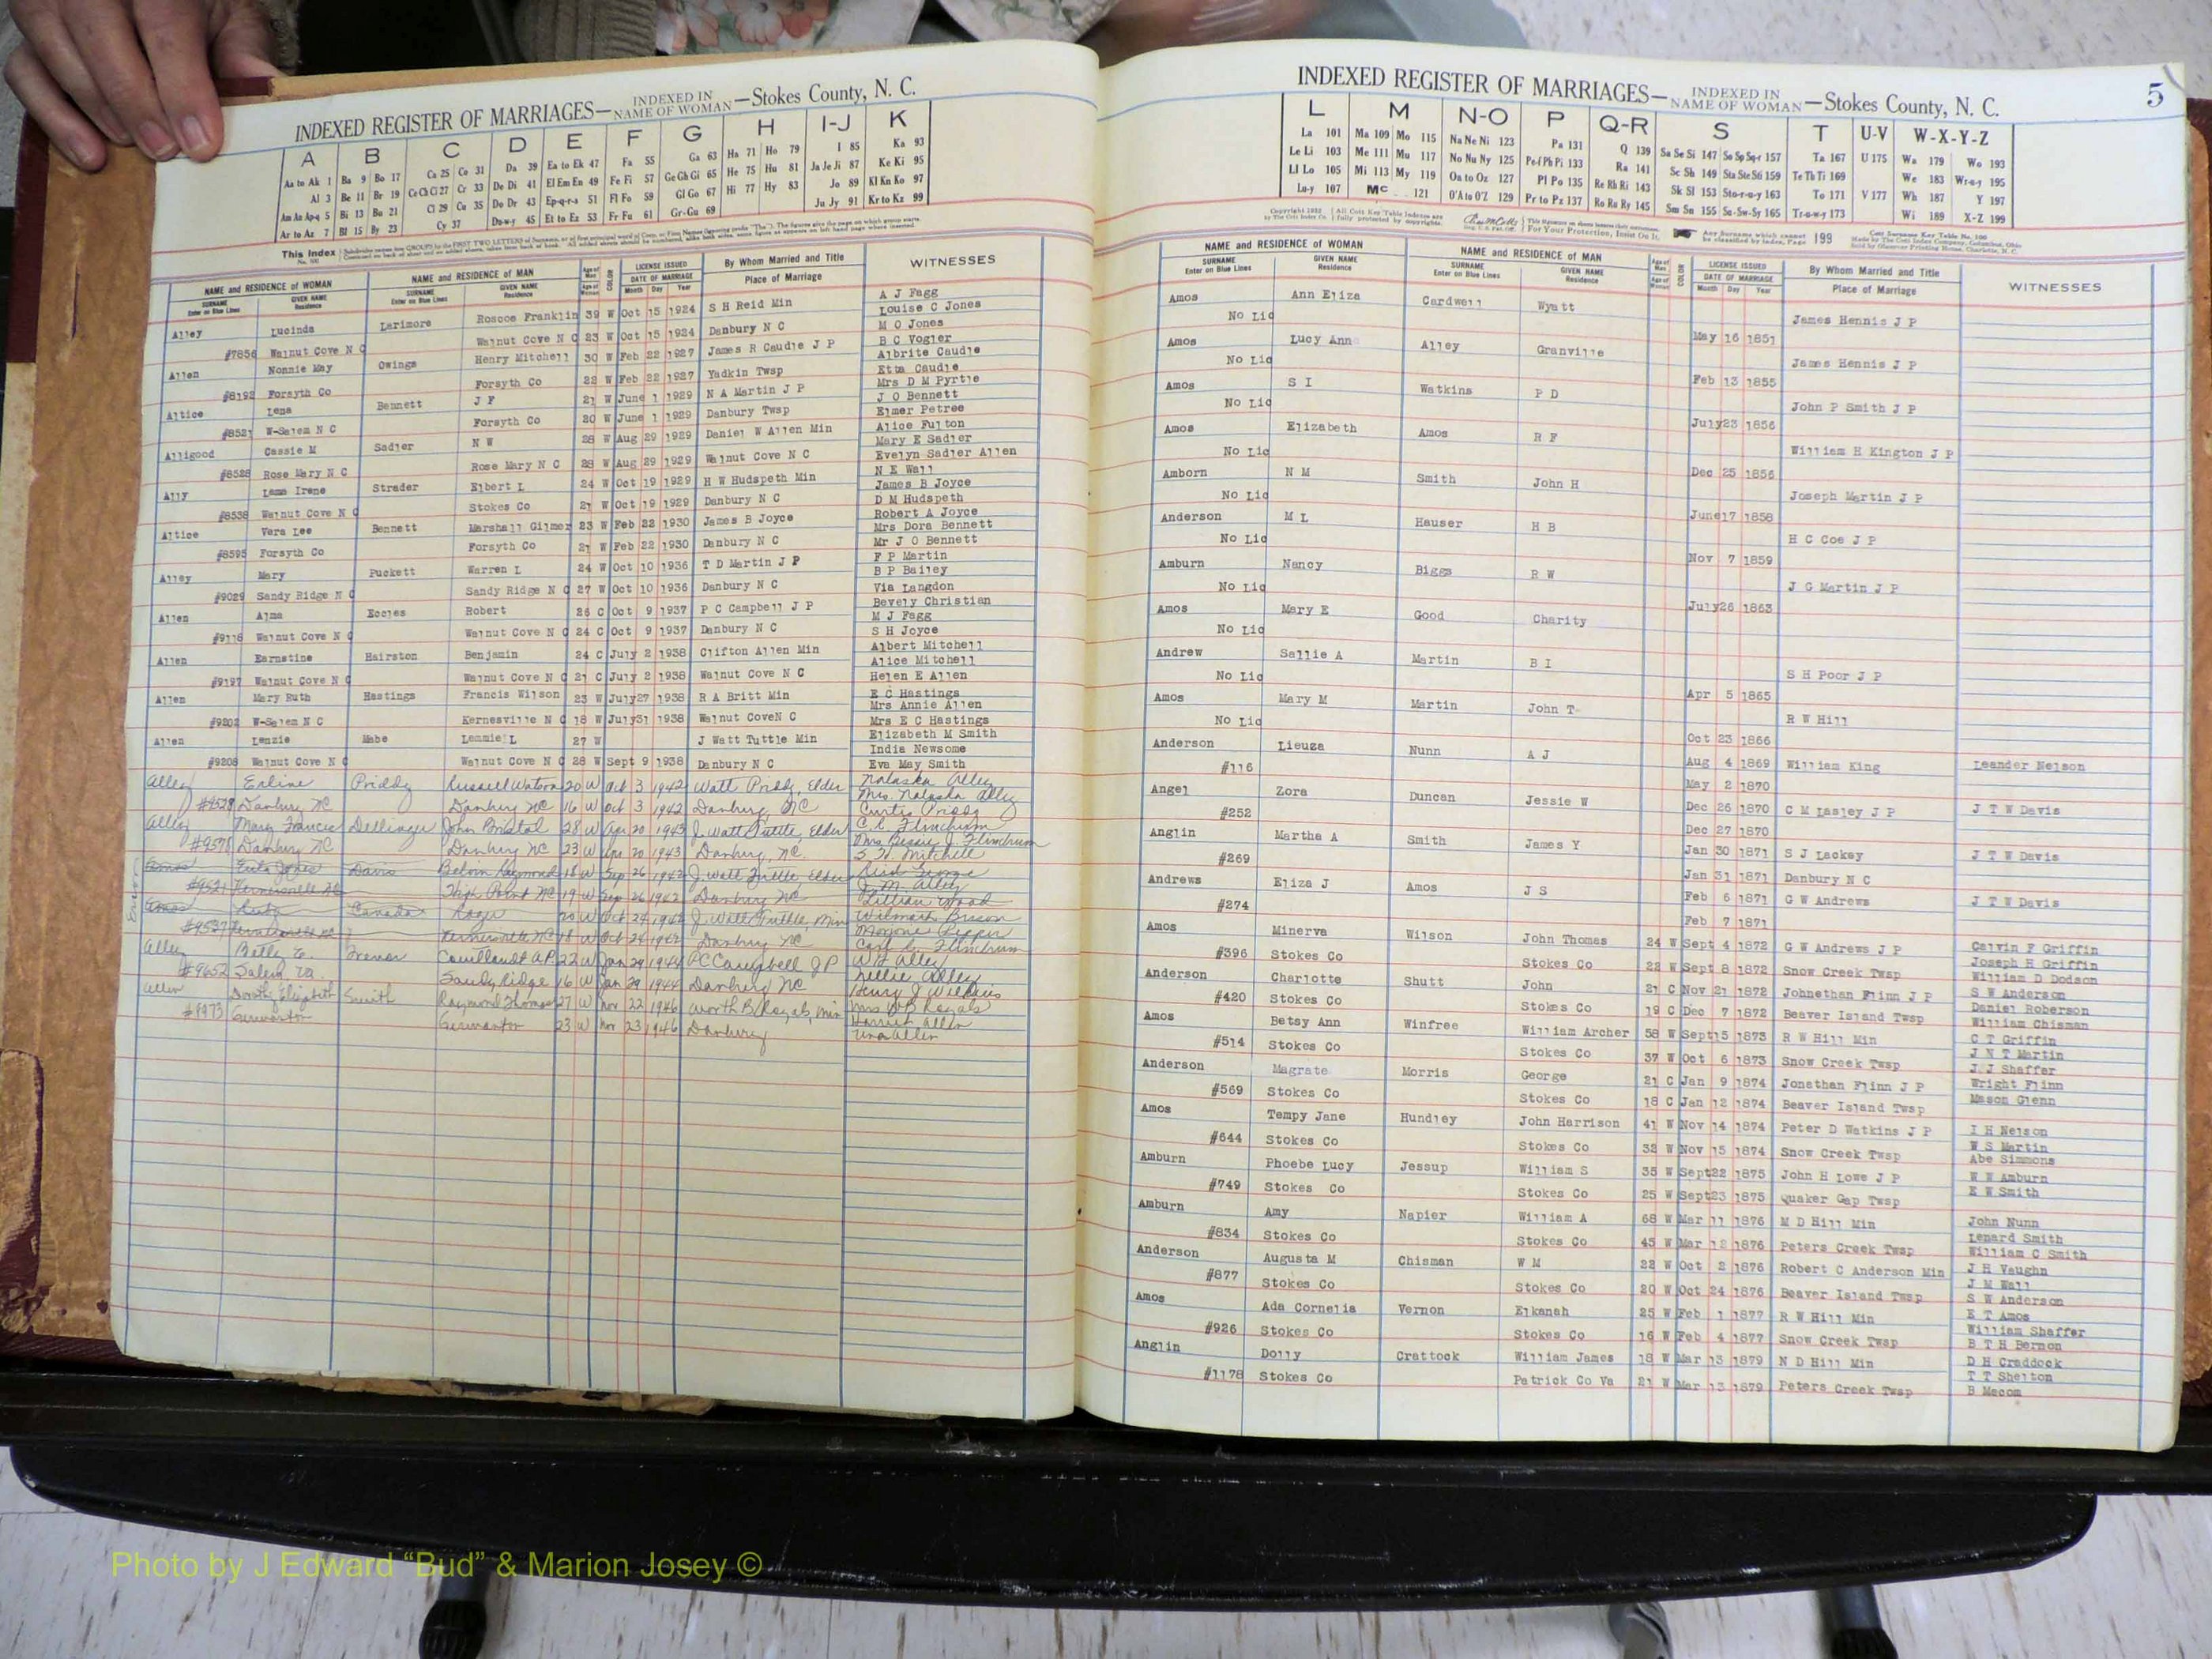 INDEXED REGISTER OF MARRIAGES— INDEXED IN NAME OF WOMAN —Stokes County, N. C.
A B C D E F G H I-J K
Aa to Ak 1 Ba 9 Bo 17 Ca 25 Co 31 Da 39 Ea to Ek 47 Fa 55 Ga 63 Ha 71 Ho 79 I 85 Ka 93
Al 3 Be 11 Br 19 Ce Ch Ci 27 Cr 33 De Di 41 El Em En 49 Fe Fi 57 Ge Gh Gi 65 He 75 Hu 81 Ja Je Ji 87 Ke Ki 95
Am An Ap-q 5 Bi 13 Bu 21 Cl 29 Cu 35 Do Dr 43 Ep-q-r-s 51 Fl Fo 59 Gl Go 67 Hi 77 Hy 83 Jo 89 Kl Kn Ko 97
Ar to Az 7 Bl 15 By 23 Cy 37 Du-w-y 45 Et to Ez 53 Fr Fu 61 Gr-Gu 69 Ju Jy 91 Kr to Kz 99
This Index
NAME and RESIDENCE of WOMAN NAME and RESIDENCE of MAN LICENSE ISSUED By Whom Married and Title WITNESSES
SURNAME Enter on Blue Lines GIVEN NAME Residence SURNAME Enter on Blue Lines GIVEN NAME Residence Age of Man Age of Woman COLOR DATE OF MARRIAGE Month Day Year Place of Marriage
A J Fagg
Alley Lucinda Larimore Roscoe Franklin 39 W Oct 15 1924 S H Reid Min Louise C Jones
#7856 Walnut Cove N C Walnut Cove N C 23 W Oct 15 1924 Danbury N C M O Jones
B C Vogler
Allen Nonnie May Owings Henry Mitchell 30 W Feb 22 1927 James R Caudle J P Albrite Caudle
#8192 Forsyth Co Forsyth Co 22 W Feb 22 1927 Yadkin Twsp Etta Caudle
Mrs D M Pyrtle
Altice Lena Bennett J F 21 W June 1 1929 N A Martin J P J O Bennett
#8521 W-Salem N C Forsyth Co 20 W June 1 1929 Danbury Twsp Elmer Petree
Alice Fulton
Alligood Cassie M Sadler N W 28 W Aug 29 1929 Daniel W Allen Min Mary E Sadler
#8528 Rose Mary N C Rose Mary N C 28 W Aug 29 1929 Walnut Cove N C Evelyn Sadler Allen
N E Wall
Ally Irene Strader Elbert L 24 W Oct 19 1929 H W Hudspeth Min James B Joyce
#8538 Walnut Cove N C Stokes Co 21 W Oct 19 1929 Danbury N C D M Hudspeth
Robert A Joyce
Altice Vera Lee Bennett Marshall Gilmer 23 W Feb 22 1930 James B Joyce Mrs Dora Bennett
#8595 Forsyth Co Forsyth Co 21 W Feb 22 1930 Danbury N C Mr J O Bennett
F P Martin
Alley Mary Puckett Warren L 24 W Oct 10 1936 T D Martin J P B P Bailey
#9029 Sandy Ridge N C Sandy Ridge N C 27 W Oct 10 1936 Danbury N C Via Langdon
Bevely Christian
Allen Alma Eccles Robert 26 C Oct 9 1937 P C Campbell J P M J Fagg
#9118 Walnut Cove N C Walnut Cove N C 24 C Oct 9 1937 Danbury N C S H Joyce
Albert Mitchell
Allen Earnstine Hairston Benjamin 24 C July 2 1938 Clifton Allen Min Alice Mitchell
#9197 Walnut Cove N C Walnut Cove N C 21 C July 2 1938 Walnut Cove N C Helen E Allen
E C Hastings
Allen Mary Ruth Hastings Francis Wilson 23 W July 27 1938 R A Britt Min Mrs Annie Allen
#9202 W-Salem N C Kernesville N C 18 W July 31 1938 Walnut CoveN C Mrs E C Hastings
Elizabeth M Smith
Allen Lenzie Mabe Lemmie L 27 W J Watt Tuttle Min India Newsome
#9208 Walnut Cove N C Walnut Cove N C 28 W Sept 9 1938 Danbury N C Eva May Smith
Alley Erline Priddy Russell Watson 20 W Oct 3 1942 Watt Priddy, Elder Nalaska Alley
#9528 Danbury NC Danbury NC 16 W Oct 3 1942 Danbury, NC Mrs. Nalaska Alley
Curtis Priddy
Alley Mary Frances Dellinger John Bristol 28 W Apr 20 1943 J. Watt Tuttle, Elder C. C. Flinchum
#9578 Danbury NC Danbury NC 23 W Apr 20 1943 Danbury, NC Mrs. Bessie J. Flinchum
Mitchell
Amos Jones Davis Belvin Raymond 18 W Sep 26 1942 J. Watt Tuttle, Elder
#9521 Kernersville NC High Point NC 19 W Sep 26 1942 Danbury NC J. M. Alley
Lillian Wood
Amos Canada Roger 20 W Oct 24 1942 J. Watt Tuttle, Min
#9537 Kernersville NC Kernersville NC 18 W Oct 24 1942 Danbury NC
Error
Alley Betty E. 22 W Jan 29 1944 P C Campbell J P
#9652 Salem Va. Sandy Ridge 16 W Jan 29 1944 Danbury NC Nellie Alley
Allen Dorothy Elizabeth Smith Raymond Thomas 27 W Nov 22 1946 Worth B. Royals, Min Mrs W B Royals
#9973 Germanton Germanton 23 W Nov 23 1946 Danbury Harriet Allen
Una Allen
INDEXED REGISTER OF MARRIAGES— INDEXED IN NAME OF WOMAN —Stokes County, N. C.
5
L M N-O P Q-R S T U-V W-X-Y-Z
La 101 Ma 109 Mo 115 Na Ne Ni 123 Pa 131 Q 139 Sa Se Si 147 So Sp Sq-r 157 Ta 167 U 175 Wa 179 Wo 193
Le Li 103 Me 111 Mu 117 No Nu Ny 125 Pe-f Ph Pi 133 Ra 141 Sc Sh 149 Sta Ste Sti 159 Te Th Ti 169 We 183 Wr-u-y 195
Ll Lo 105 Mi 113 My 119 Oa to Oz 127 Pl Po 135 Re Rh Ri 143 Sk Sl 153 Sto-r-u-y 163 To 171 V 177 Wh 187 Y 197
Lu-y 107 Mc 121 O'A to O'Z 129 Pr to Pz 137 Ro Ru Ry 145 Sm Sn 155 Su-Sw-Sy 165 Tr-u-w-y 173 Wi 189 X-Z 199
Any Surname which cannot be classified by index, Page 199
NAME and RESIDENCE OF WOMAN NAME and RESIDENCE OF MAN LICENSE ISSUED By Whom Married and Title WITNESSES
SURNAME Enter on Blue Lines GIVEN NAME Residence SURNAME Enter on Blue Lines GIVEN NAME Residence Age of Man Age of Woman COLOR DATE OF MARRIAGE Month Day Year Place of Marriage
Amos Ann Eliza Cardwell Wyatt
No Lic May 16 1851 James Hennis J P
Amos Lucy Ann Alley Granville
No Lic Feb 13 1855 James Hennis J P
Amos S I Watkins P D
No Lic July 23 1856 John P Smith J P
Amos Elizabeth Amos R F
No Lic Dec 25 1856 William H Kington J P
Amborn N M Smith John H
No Lic June 17 1858 Joseph Martin J P
Anderson M L Hauser H B
No Lic Nov 7 1859 H C Coe J P
Amburn Nancy Biggs R W
No Lic July 26 1863 J G Martin J P
Amos Mary E Good Charity
No Lic
Andrew Sallie A Martin B I
No Lic Apr 5 1865 S H Poor J P
Amos Mary M Martin John T
No Lic Oct 23 1866 R W Hill
Anderson Lieuza Nunn A J Aug 4 1869 William King Leander Nelson
#116 May 2 1870
Angel Zora Duncan Jessie W Dec 26 1870 C M Lasley J P J T W Davis
#252 Dec 27 1870
Anglin Martha A Smith James Y Jan 30 1871 S J Lackey J T W Davis
#269 Jan 31 1871 Danbury N C
Andrews Eliza J Amos J S Feb 6 1871 G W Andrews J T W Davis
#274 Feb 7 1871
Amos Minerva Wilson John Thomas 24 W Sept 4 1872 G W Andrews J P Calvin F Griffin
#396 Stokes Co Stokes Co 22 W Sept 8 1872 Snow Creek Twsp Joseph H Griffin
William D Dodson
Anderson Charlotte Shutt John 21 C Nov 21 1872 Johnethan Flinn J P S W Anderson
#420 Stokes Co Stokes Co 19 C Dec 7 1872 Beaver Island Twsp Daniel Roberson
William Chisman
Amos Betsy Ann Winfree William Archer 58 W Sept 15 1873 R W Hill Min C T Griffin
#514 Stokes Co Stokes Co 37 W Oct 6 1873 Snow Creek Twsp J N T Martin
J J Shaffer
Anderson Magrate Morris George 21 C Jan 9 1874 Jonathan Flinn J P Wright Flinn
#569 Stokes Co Stokes Co 18 C Jan 12 1874 Beaver Island Twsp Mason Glenn
Amos Tempy Jane Hundley John Harrison 41 W Nov 14 1874 Peter D Watkins J P I H Nelson
#644 Stokes Co Stokes Co 32 W Nov 15 1874 Snow Creek Twsp W S Martin
Abe Simmons
Amburn Phoebe Lucy Jessup William S 35 W Sept 22 1875 John H Lowe J P W W Amburn
#749 Stokes Co Stokes Co 25 W Sept 23 1875 Quaker Gap Twsp E W Smith
Amburn Amy Napier William A 68 W Mar 11 1876 M D Hill Min John Nunn
#834 Stokes Co Stokes Co 45 W Mar 12 1876 Peters Creek Twsp Lenard Smith
William C Smith
Anderson Augusta M Chisman W M 22 W Oct 2 1876 Robert C Anderson Min J H Vaughn
#877 Stokes Co Stokes Co 20 W Oct 24 1876 Beaver Island Twsp J M Wall
S W Anderson
Amos Ada Cornelia Vernon Elkanah 25 W Feb 1 1877 R W Hill Min E T Amos
#926 Stokes Co Stokes Co 16 W Feb 4 1877 Snow Creek Twsp William Shaffer
B T H Bernon
Anglin Dolly Crattock William James 18 W Mar 13 1879 N D Hill Min D H Craddock
#1178 Stokes Co Patrick Co Va 21 W Mar 13 1879 Peters Creek Twsp T T Shelton
B Mecom
Photo by J Edward “Bud” & Marion Josey ©